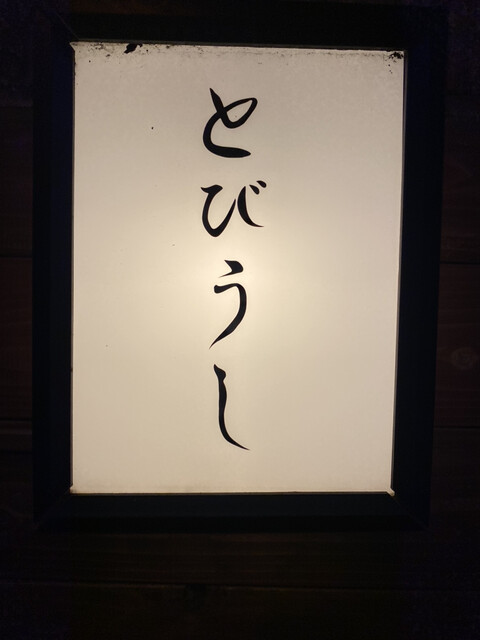 とびうし